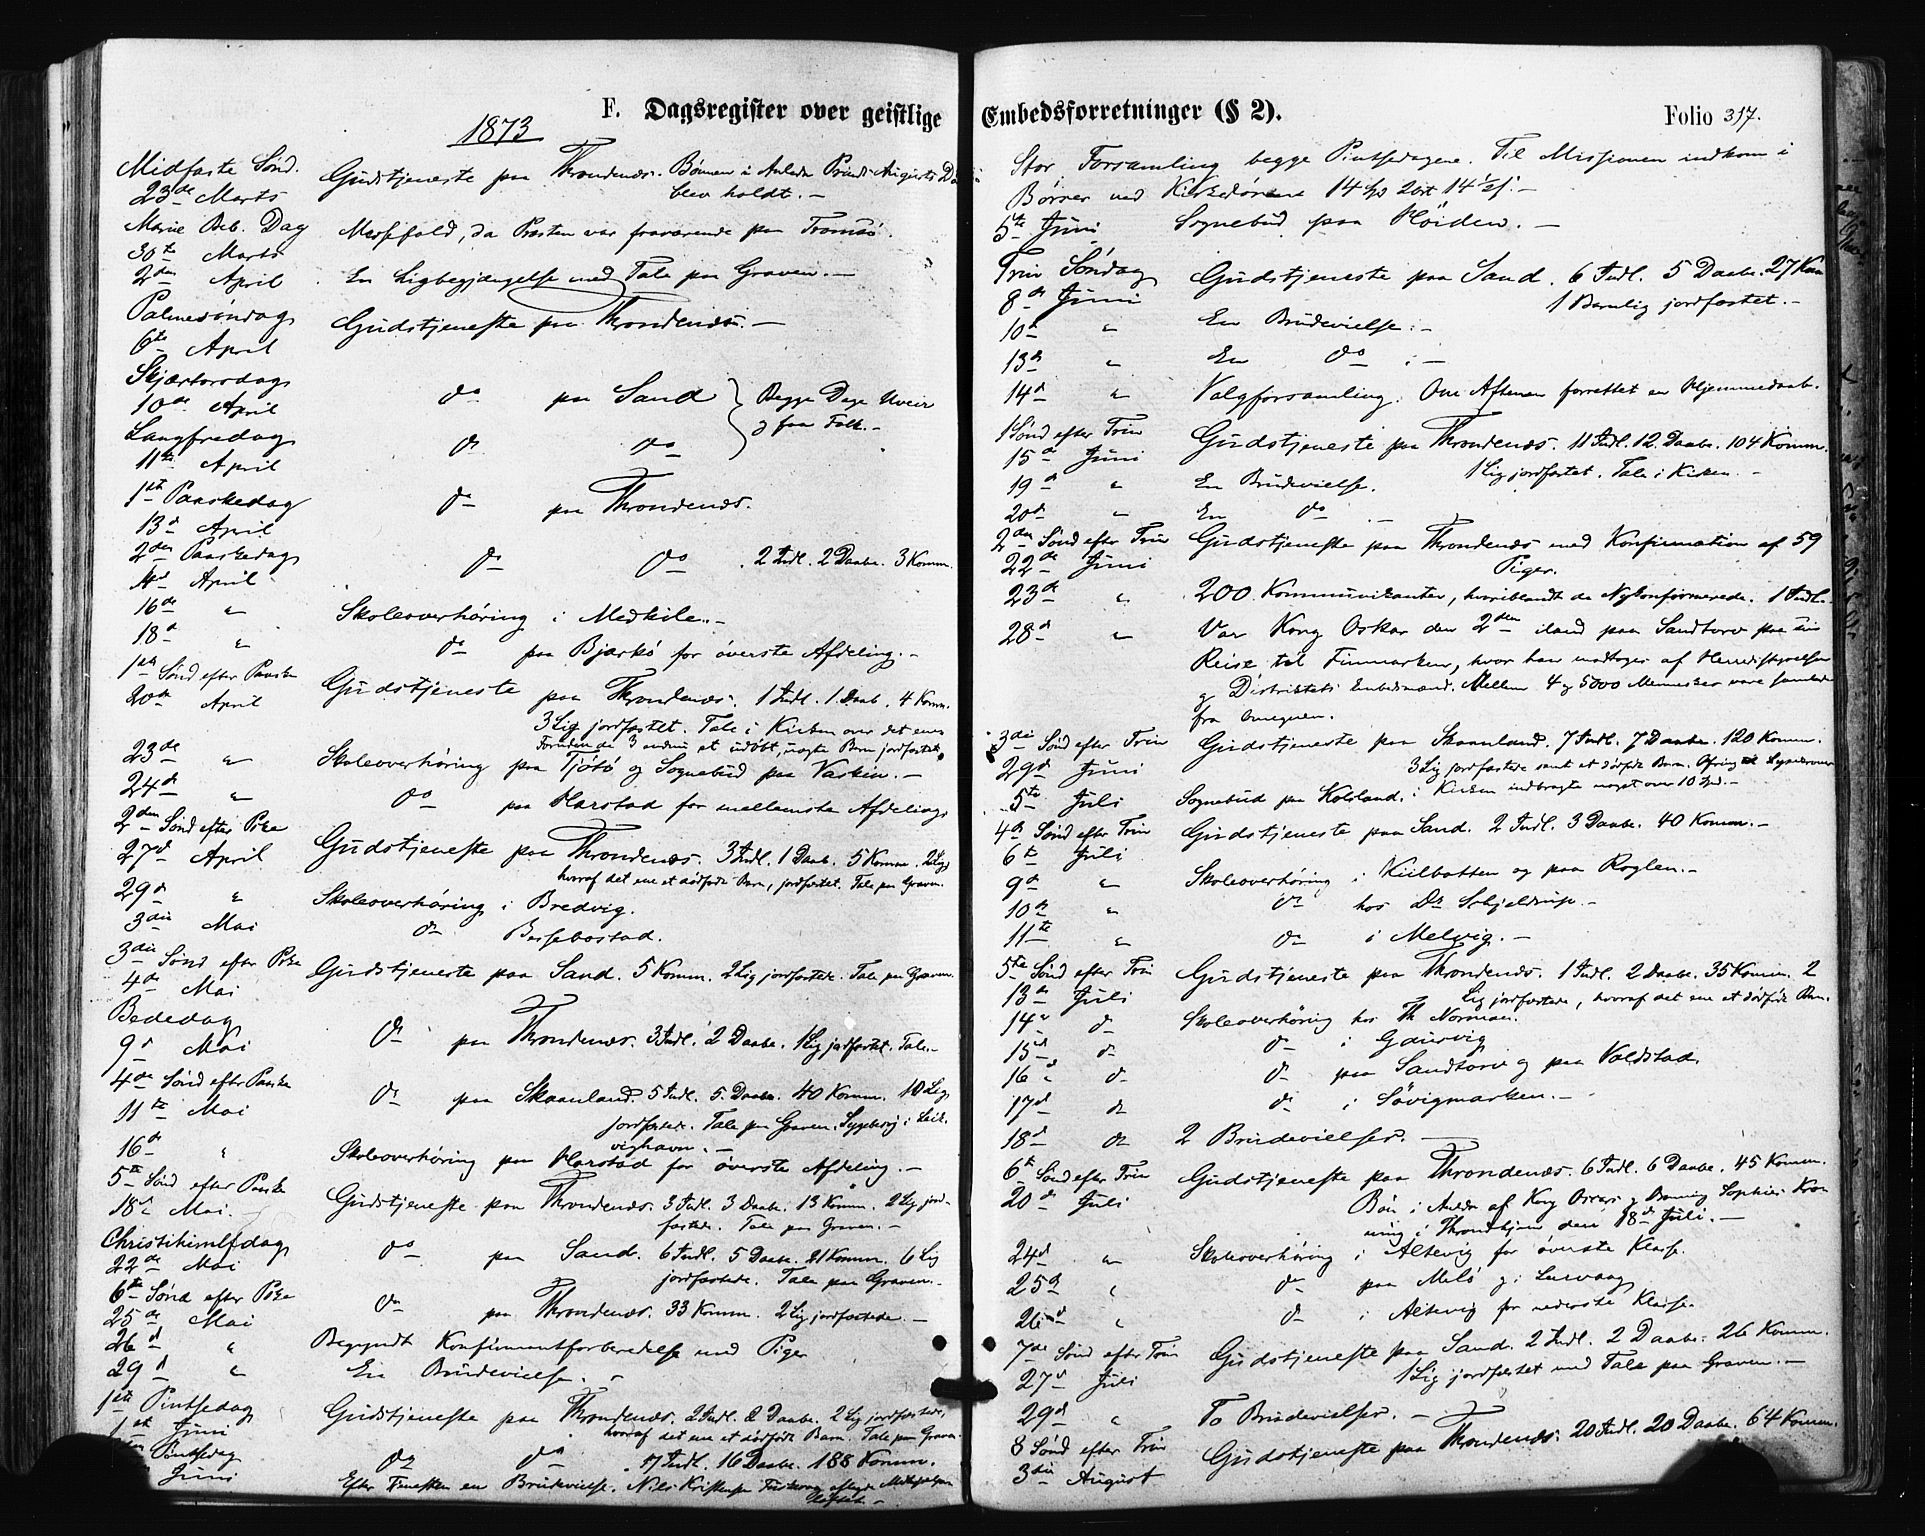 F. Dagsregister over geistlige
1873
Midfaste Sønd. Gudstjeneste paa Throndenæs. Bønnen i Anledn Prinds Augusts Død
23de Marts blev holdt. —
Marie Beb. Dag Messefald, da Præsten var fraværende paa Tromsø.
30te Marts
2den April En Ligbegjængelse med Tale paa Graven. —
Palmesøndag Gudstjeneste paa Throndenæs. —
6te April
Skjærtorsdag do paa Sand Begge Dage Uveir
10de April & faa Folk. —
Langfredag do do
11te April
1ste Paaskedag do paa Throndenæs.
13de April
2den Paaskedag do do . 2 Indl. 2 Daabe. 3 Komm.
14de April
16de " Skoleoverhøring i Medkile. —
18de " do paa Bjarkö for överste Afdeling. —
1ste Sønd efter Paaske Gudstjeneste paa Throndenæs. 1 Indl. 1 Daab. 4 Komm.
20de April 3 Lig jordfæstet. Tale i Kirken over det ene
Foruden de 3 endnu et udøbt, Barn jordfæstet.
23de " Skoleoverhøring paa Tjötö og Sognebud paa
24de " do paa Harstad for mellemste Afdeling
2den Sønd efter Pske Gudstjeneste paa Throndenæs. 3 Indl. 1 Daab. 5 Komm. 2 Lig,
27de April hvoraf det ene et dödfødt Barn, jordfæstet. Tale paa Graven.
29de " Skoleoverhøring i Bredvig.
3die Mai do Bessebostad.
3die Sønd efter Pske Gudstjeneste paa Sand. 5 Komm. 2 Lig jordfæstede. Tale paa Graven.
4de Mai
Bededag do paa Throndenæs. 3 Indl. 2 Daabe. 1 Lig jordfæstet. Tale. —
9de Mai
4de Sønd efter Paaske do paa Skaanland. 5 Indl. 5 Daabe. 40 Komm. 10 Lig
11te Mai jordfæstet. Tale paa Graven. Sygebesøg i
vighavn. —
16de " Skoleoverhøring paa Harstad for överste Afdeling. —
5te Sønd efter Paaske Gudstjeneste paa Throndenæs. 3 Indl. 3 Daabe. 13 Komm. 2 Lig jord-
18de Mai. fæstede. Tale paa Graven. —
Christihimlfdag do paa Sand. 6 Indl. 5 Daabe. 21 Komm. 6 Lig
22de Mai jordfæstede. Tale paa Graven. —
6te Sønd efter Pske do paa Throndenæs. 33 Komm. 2 Lig jordfæstede. —
25de Mai
26de " Begyndt Konfirmantforberedelse med Piger
29de " En Brudevielse. —
1ste Pintsedag Gudstjeneste paa Throndenæs. 2 Indl. 2 Daabe. 2 Lig jordfæstede,
1ste Juni hvoraf det ene et dödfødt Barn. Tale paa Graven.
Pintsedag do do . 17 Indl. 16 Daabe. 188 Komm.
Juni Efter Tjenesten en Brudevielse. Nils Kristensen
Embedsforretninger (§ 2).
Folio 317.
Stor Forsamling begge Pintsedagene. Til Missionen indkom i
Bøsser ved Kirkedørene 14 Spd 2 Ort 14½ s. —
5te Juni Sognebud paa
Trin Søndag Gudstjeneste paa Sand. 6 Indl. 5 Daabe. 27 Kom
8de Juni 1 Barnlig jordfæstet. —
10de " En Brudevielse. —
13de " En do. —
14de " Valgforsamling. Om Aftenen forrettet en Hjemmedaab.
1 Sønd efter Trin Gudstjeneste paa Throndenæs. 11 Indl. 12 Daabe. 104 Komm.
15de Juni 1 Lig jordfæstet. Tale i Kirken. —
19de " En Brudevielse.
20de " En do. —
2den Sønd efter Trin Gudstjeneste paa Throndenæs med Konfirmation af 59
22de Juni Piger.
23de " 200 Kommunikanter, hvoriblandt de Nykonfirmerede. 1 Indl.
28de " Var Kong Oskar den 2den iland paa Sandtorv paa sin
Reise til Finmarken, hvor han modtoges af Herredsstyrelsen
og Distriktets Embedsmænd. Mellem 4 og 5000 Mennesker vare samlede
fra Omegnen.
3die Sønd efter Trin Gudstjeneste paa Skaanland. 7 Indl. 7 Daabe. 120 Komm.
29de Juni 3 Lig jordfæstede samt et dödfødt Barn.
5te Juli Sognebud paa i Kirken indbragte noget over 10 Spd. —
4de Sønd efter Trin Gudstjeneste paa Sand. 2 Indl. 3 Daabe. 40 Komm. —
6te Juli
9de " Skoleoverhøring i Kiilbotten og paa Roglen. —
10de " do hos Dr Schjeldrup. —
11te " do i Melvig. —
5te Sønd efter Trin Gudstjeneste paa Throndenæs. 1 Indl. 2 Daabe. 35 Komm. 2
13de Juli Lig jordfæstede, hvoraf det ene et dödfødt Barn.
14de do Skoleoverhøring hos Th Normann.
15de do do i Gausvig
16de do do paa Sandtorv og paa Voldstad.
17de do do i Sövigmarken. —
18de do 2 Brudevielser. —
6te Sønd efter Trin Gudstjeneste paa Throndenæs. 6 Indl. 6 Daabe. 45 Komm.
20de Juli Bön i Anledn af Kong Oscars og Dronning Sophies Kro-
ning i Throndhjem den 18de Juli. —
24de " Skoleoverhøring i Altevig for överste Klasse.
25de " do paa Melö og i
26de " do i Altevig for nederste Klasse.
7de Sønd efter Trin Gudstjeneste paa Sand. 2 Indl. 2 Daabe. 26 Komm.
27de Juli 1 Lig jordfæstet med Tale paa Graven. —
29de " To Brudevielser. —
8 Sønd efter Trin Gudstjeneste paa Throndenæs. 20 Indl. 20 Daabe. 64 Komm.
3die August